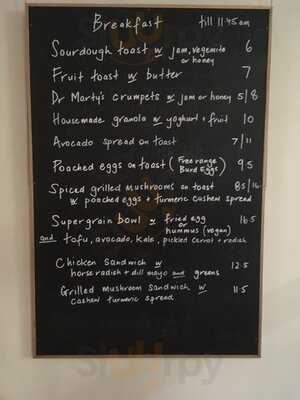 Breakfast till 11:45am
Sourdough toast w jam, vegemite 6
or honey
Fruit toast w butter 7
Dr Marty's crumpets w jam or honey 5/8
Housemade granola w yoghurt + fruit 10
Avocado spread on toast 7/11
Poached eggs on toast (Free range 9.5
Burd Eggs)
Spiced grilled mushrooms on toast 8.5/16
w poached eggs + turmeric cashew spread
Supergrain bowl w fried egg 16.5
or
hummus (vegan)
and tofu, avocado, kale, pickled carrot + radish
Chicken Sandwich w 12.5
horseradish + dill mayo and greens
Grilled mushroom sandwich w 11.5
cashew turmeric spread